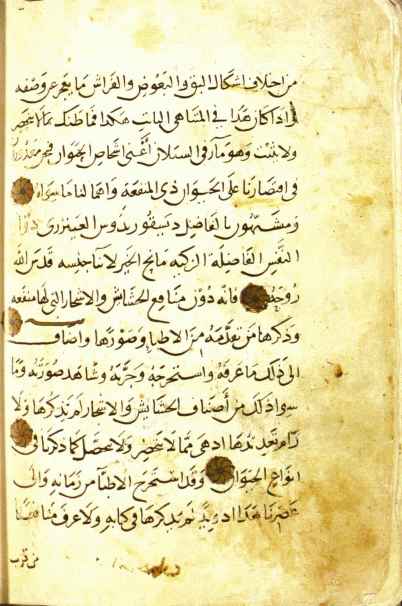 من اختلاف اشكال البق والبعوض والفراش ما يعجز عن وصفه
واذا كان هذا في المتناهي الثابت هكذا فما ظنك بما لا ينحصر
ولا يثبت وهو مار في السيلان اعني اشخاص الحيوان فنحن معذورون
في اقتصارنا على الحيوان ذي المنفعة واهمالنا ما سواه
ومتشبهون بالفاضل ديسقوريدوس العين زربي ذي
النفس الفاضلة الزكية مانح الخير لابنا جنسه قدس الله
روحه فانه دون منافع الحشايش والاشجار التي لها منفعة
وذكرها من تقدمه من الاطبا وصورها واضاف
الى ذلك ما عرفه واستخرجه وجربه وشاهد صورته وما
سوا ذلك من اصناف الحشايش والاشجار لم يذكرها ولا
رام تعديدها اذ هي مما لا ينحصر ولا يحصل كما ذكرنا في
انواع الحيوان وقد استخرج الاطبا من زمانه والى
عصرنا هذا ادوية لم يذكرها في كتابه ولا عرف منافعها